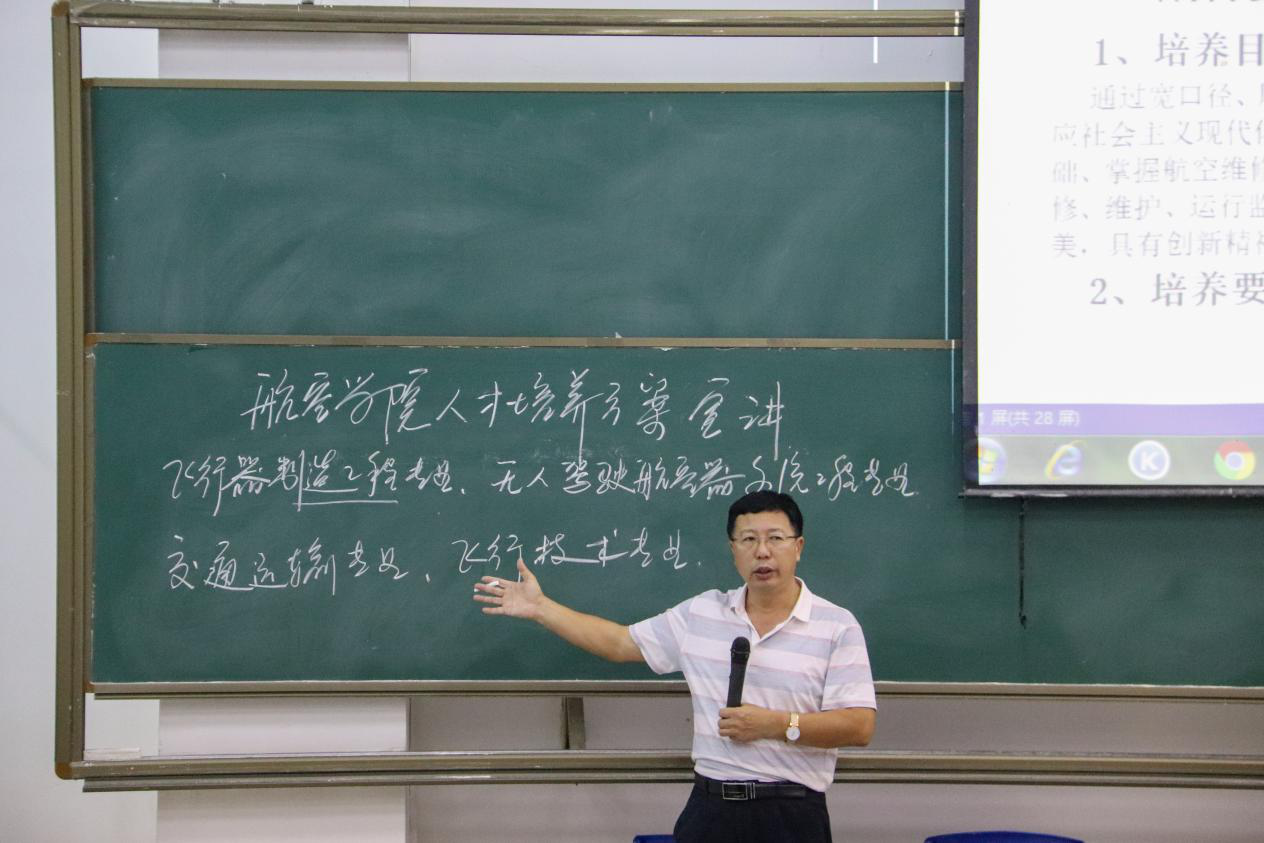 航空学院人才培养方案宣讲
飞行器制造工程专业、无人驾驶航空器系统工程专业
交通运输专业、飞行技术专业.
1、培养目
通过宽口径、
应社会主义现代化
础、掌握航空维修
修、维护、运行监
美，具有创新精神
2、培养要
1 屏(共 28 屏)
K